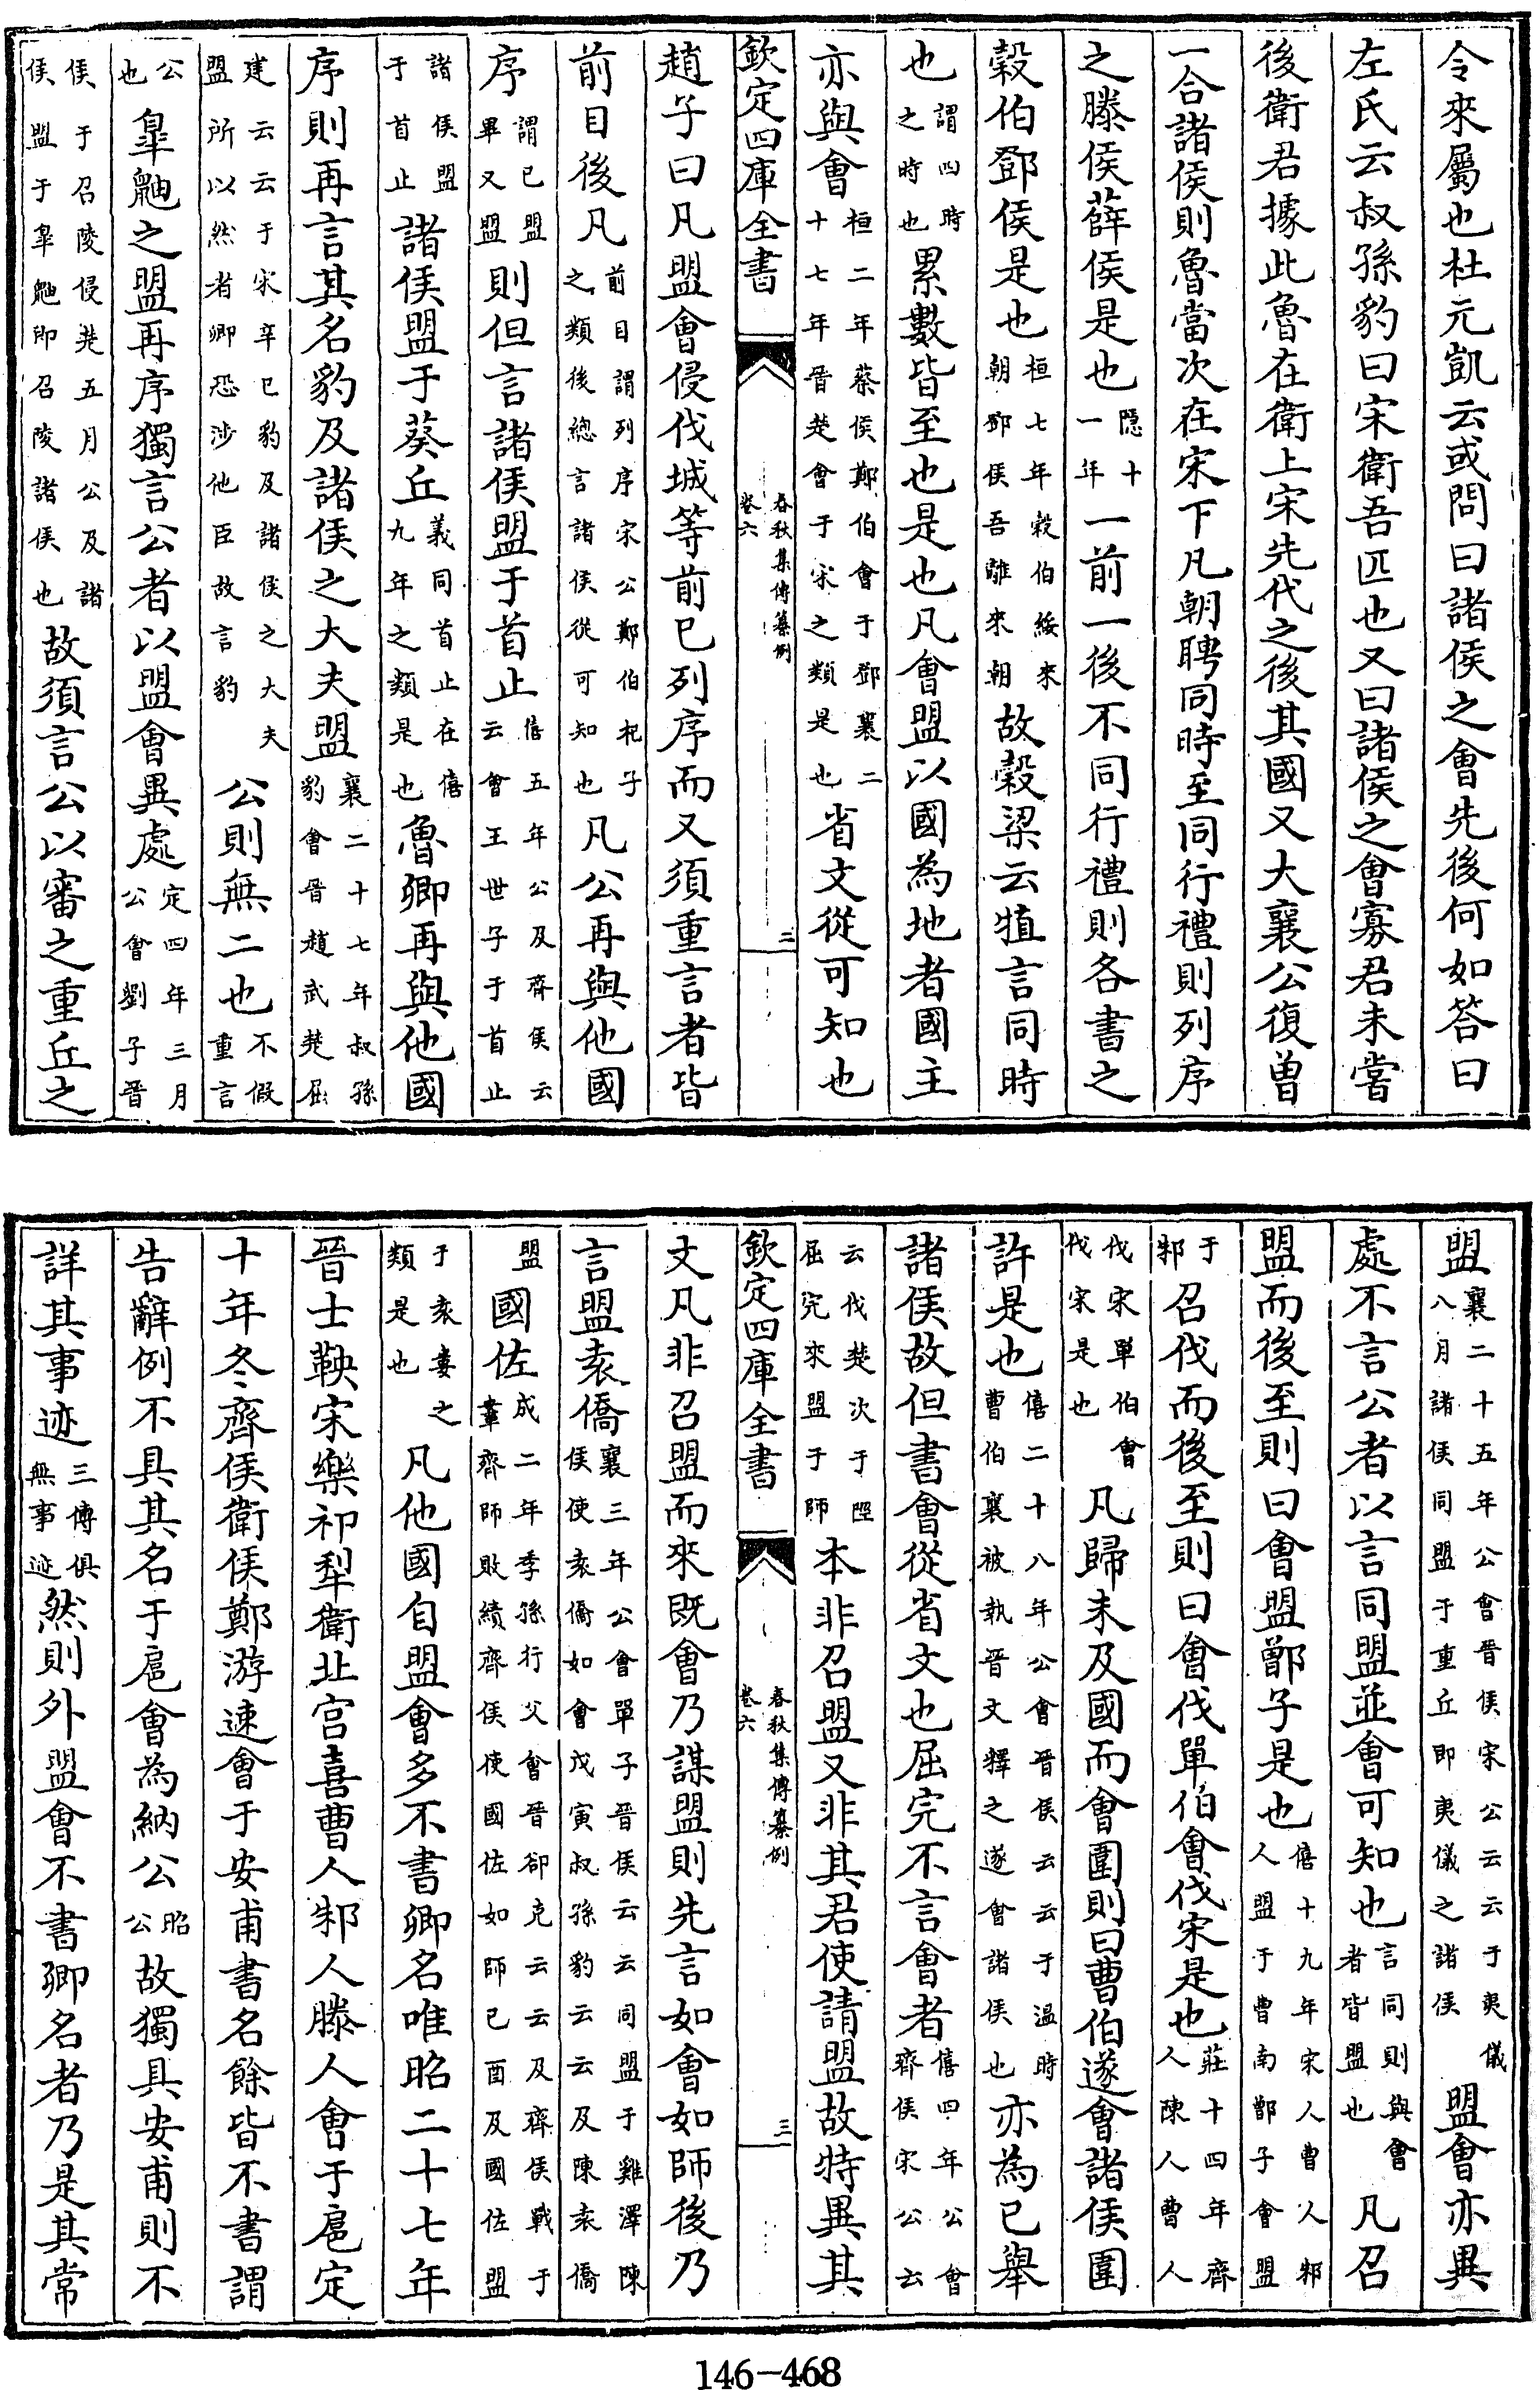 令來屬也杜元凱云或問曰諸侯之會先後何如答曰
左氏云叔孫豹曰宋衛吾匹也又曰諸侯之會寡君未嘗
後衛君據此魯在衛上宋先代之後其國又大襄公復曾
一合諸侯則魯當次在宋下凡朝聘同時至同行禮則列序
之滕侯薛侯是也隱十一年一前一後不同行禮則各書之
穀伯鄧侯是也桓七年穀伯綏來朝鄧侯吾離來朝故穀梁云犆言同時
也謂四時之時也累數皆至也是也凡會盟以國為地者國主
亦與會桓二年蔡侯鄭伯會于鄧襄二十七年晉楚會于宋之類是也省文從可知也
欽定四庫全書 春秋集傳纂例 卷六 三
趙子曰凡盟會侵伐城等前已列序而又須重言者皆
前目後凡前目謂列序宋公鄭伯杞子之類後總言諸侯從可知也凡公再與他國
序謂已盟畢又盟則但言諸侯盟于首止僖五年公及齊侯云云會王世子于首止
諸侯盟于首止諸侯盟于葵丘義同首止在僖九年之類是也魯卿再與他國
序則再言其名豹及諸侯之大夫盟襄二十七年叔孫豹會晉趙武楚屈
建云云于宋辛巳豹及諸侯之大夫盟所以然者卿恐涉他臣故言豹公則無二也不假重言
公也臯鼬之盟再序獨言公者以盟會異處定四年三月公會劉子晉
侯于召陵侵楚五月公及諸侯盟于臯鼬即召陵諸侯也故須言公以審之重丘之
盟襄二十五年公會晉侯宋公云云于夷儀八月諸侯同盟于重丘即夷儀之諸侯盟會亦異
處不言公者以言同盟並會可知也言同則與會者皆盟也凡召
盟而後至則曰會盟鄫子是也僖十九年宋人曹人邾人盟于曹南鄫子會盟
于邾召伐而後至則曰會伐單伯會伐宋是也莊十四年齊人陳人曹人
伐宋單伯會伐宋是也凡歸未及國而會圍則曰曹伯遂會諸侯圍
許是也僖二十八年公會晉侯云云于温時曹伯襄被執晉文釋之遂會諸侯也亦為已舉
諸侯故但書會從省文也屈完不言會者僖四年公會齊侯宋公云
云伐楚次于陘屈完來盟于師本非召盟又非其君使請盟故特異其
欽定四庫全書 春秋集傳纂例 卷六 三
文凡非召盟而來既會乃謀盟則先言如會如師後乃
言盟袁僑襄三年公會單子晉侯云云同盟于雞澤陳侯使袁僑如會戊寅叔孫豹云云及陳袁僑
盟國佐成二年季孫行父會晉郤克云云及齊侯戰于鞌齊師敗績齊侯使國佐如師已酉及國佐盟
于袁婁之類是也凡他國自盟會多不書卿名唯昭二十七年
晉士鞅宋樂祁犁衛北宮喜曹人邾人滕人會于扈定
十年冬齊侯衛侯鄭游速會于安甫書名餘皆不書謂
告辭例不具其名于扈會為納公昭公故獨具安甫則不
詳其事迹三傳俱無事迹然則外盟會不書卿名者乃是其常
146-468